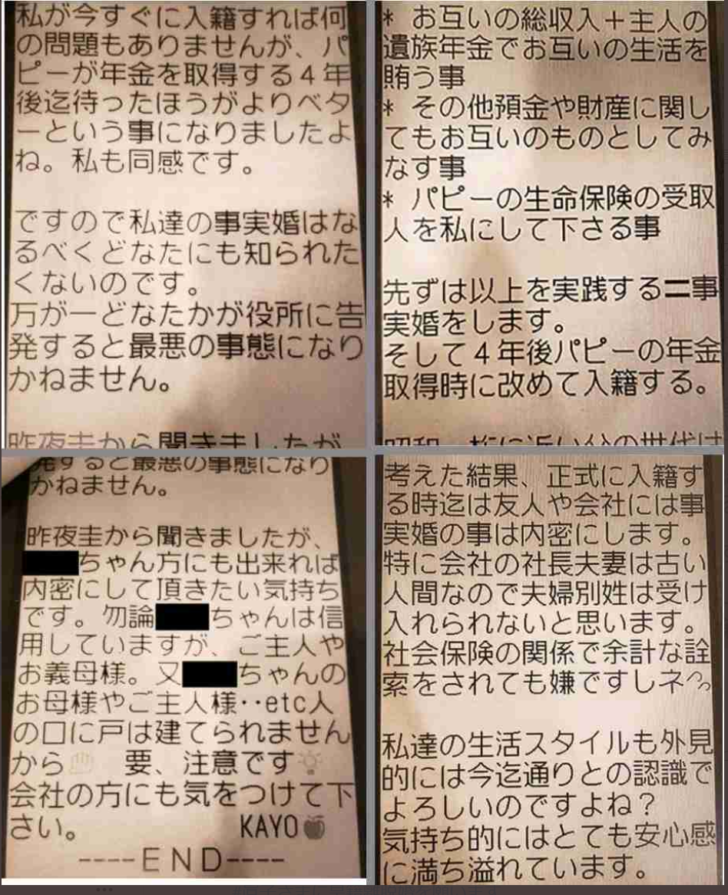 私が今すぐに入籍すれば何
の問題もありませんが、パ
ピーが年金を取得する４年
後迄待ったほうがよりベタ
ーという事になりましたよ
ね。私も同感です。
ですので私達の事実婚はな
るべくどなたにも知られた
くないのです。
万が一どなたかが役所に告
発すると最悪の事態になり
かねません。
昨夜圭から聞きましたが、
* お互いの総収入＋主人の
遺族年金でお互いの生活を
賄う事
* その他預金や財産に関し
てもお互いのものとしてみ
なす事
* パピーの生命保険の受取
人を私にして下さる事
先ずは以上を実践する＝事
実婚をします。
そして４年後パピーの年金
取得時に改めて入籍する。
発すると最悪の事態になり
かねません。
昨夜圭から聞きましたが、
ちゃん方にも出来れば
内密にして頂きたい気持ち
です。勿論 ちゃんは信
用していますが、ご主人や
お義母様。又 ちゃんの
お母様やご主人様‥etc人
の口に戸は建てられません
から✋ 要、注意です💡
会社の方にも気をつけて下
さい。 KAYO🍎
----END----
考えた結果、正式に入籍す
る時迄は友人や会社には事
実婚の事は内密にします。
特に会社の社長夫妻は古い
人間なので夫婦別姓は受け
入れられないと思います。
社会保険の関係で余計な詮
索をされても嫌ですしネ
私達の生活スタイルも外見
的には今迄通りとの認識で
よろしいのですよね？
気持ち的にはとても安心感
に満ち溢れています。